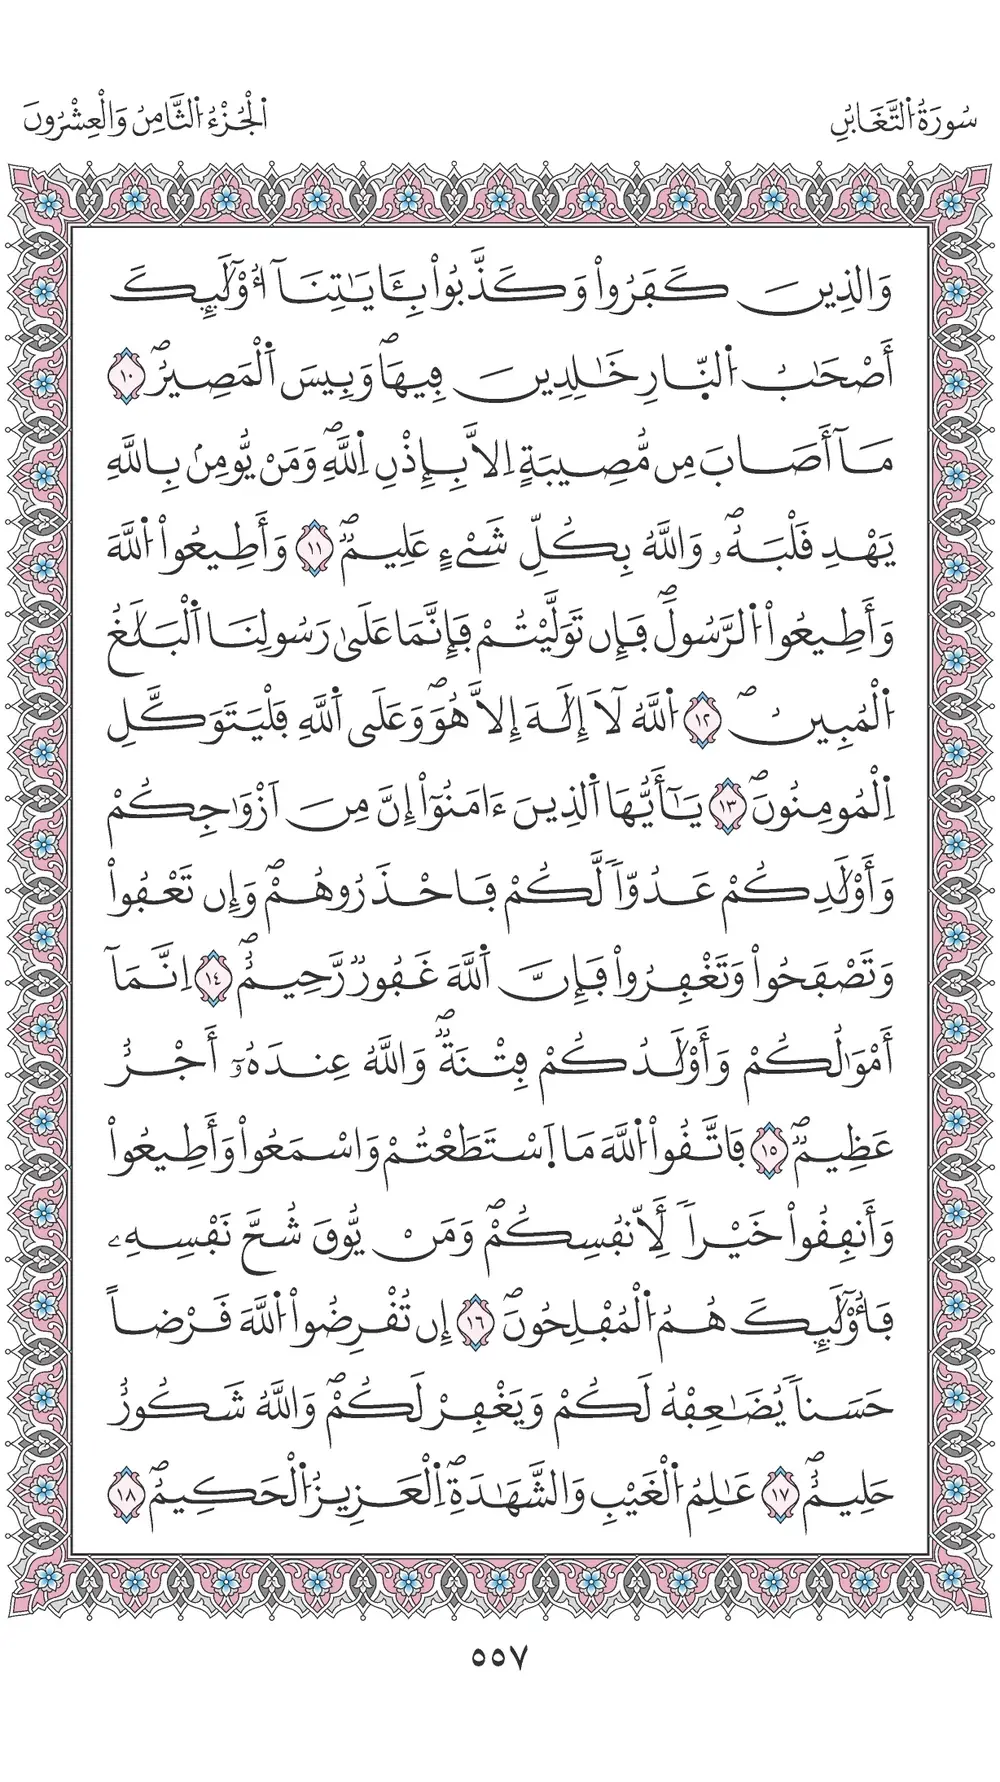 سُورَةُ اُ۬لتَّغَابُنِ
اَ۬لْجُزْءُ اُ۬لثَّامِنُ وَالْعِشْرُونَ
وَالذِينَ كَفَرُواْ وَكَذَّبُواْ بِـَٔايَٰتِنَآ أُوْلَٰٓئِكَ
أَصْحَٰبُ اُ۬لنّ۪ارِ خَٰلِدِينَ فِيهَاۖ وَبِيسَ اَ۬لْمَصِيرُۖ ١٠
مَآ أَصَابَ مِن مُّصِيبَةٍ اِلَّا بِإِذْنِ اِ۬للَّهِۖ وَمَنْ يُّومِنۢ بِاللَّهِ
يَهْدِ قَلْبَهُۥۖ وَاللَّهُ بِكُلِّ شَےْءٍ عَلِيمٞۖ ١١ وَأَطِيعُواْ اُ۬للَّهَ
وَأَطِيعُواْ اُ۬لرَّسُولَۖ فَإِن تَوَلَّيْتُمْ فَإِنَّمَا عَلَىٰ رَسُولِنَا اَ۬لْبَلَٰغُ
اُ۬لْمُبِينُۖ ١٢ اُ۬للَّهُ لَآ إِلَٰهَ إِلَّا هُوَۖ وَعَلَى اَ۬للَّهِ فَلْيَتَوَكَّلِ
اِ۬لْمُومِنُونَۖ ١٣ يَٰٓأَيُّهَا اَ۬لذِينَ ءَامَنُوٓاْ إِنَّ مِنَ اَزْوَٰجِكُمْ
وَأَوْلَٰدِكُمْ عَدُوّاٗ لَّكُمْ فَاحْذَرُوهُمْۖ وَإِن تَعْفُواْ
وَتَصْفَحُواْ وَتَغْفِرُواْ فَإِنَّ اَ۬للَّهَ غَفُورٞ رَّحِيمٌۖ ١٤ اِنَّمَآ
أَمْوَٰلُكُمْ وَأَوْلَٰدُكُمْ فِتْنَةٞۖ وَاللَّهُ عِندَهُۥٓ أَجْرٌ
عَظِيمٞۖ ١٥ فَاتَّقُواْ اُ۬للَّهَ مَا اَ۪سْتَطَعْتُمْ وَاسْمَعُواْ وَأَطِيعُواْ
وَأَنفِقُواْ خَيْراٗ لِّأَنفُسِكُمْۖ وَمَنْ يُّوقَ شُحَّ نَفْسِهِۦ
فَأُوْلَٰٓئِكَ هُمُ اُ۬لْمُفْلِحُونَۖ ١٦ إِن تُقْرِضُواْ اُ۬للَّهَ قَرْضاً
حَسَناٗ يُضَٰعِفْهُ لَكُمْ وَيَغْفِرْ لَكُمْۖ وَاللَّهُ شَكُورٌ
حَلِيمٌۖ ١٧ عَٰلِمُ اُ۬لْغَيْبِ وَالشَّهَٰدَةِۖ اِ۬لْعَزِيزُ اُ۬لْحَكِيمُۖ ١٨
٥٥٧